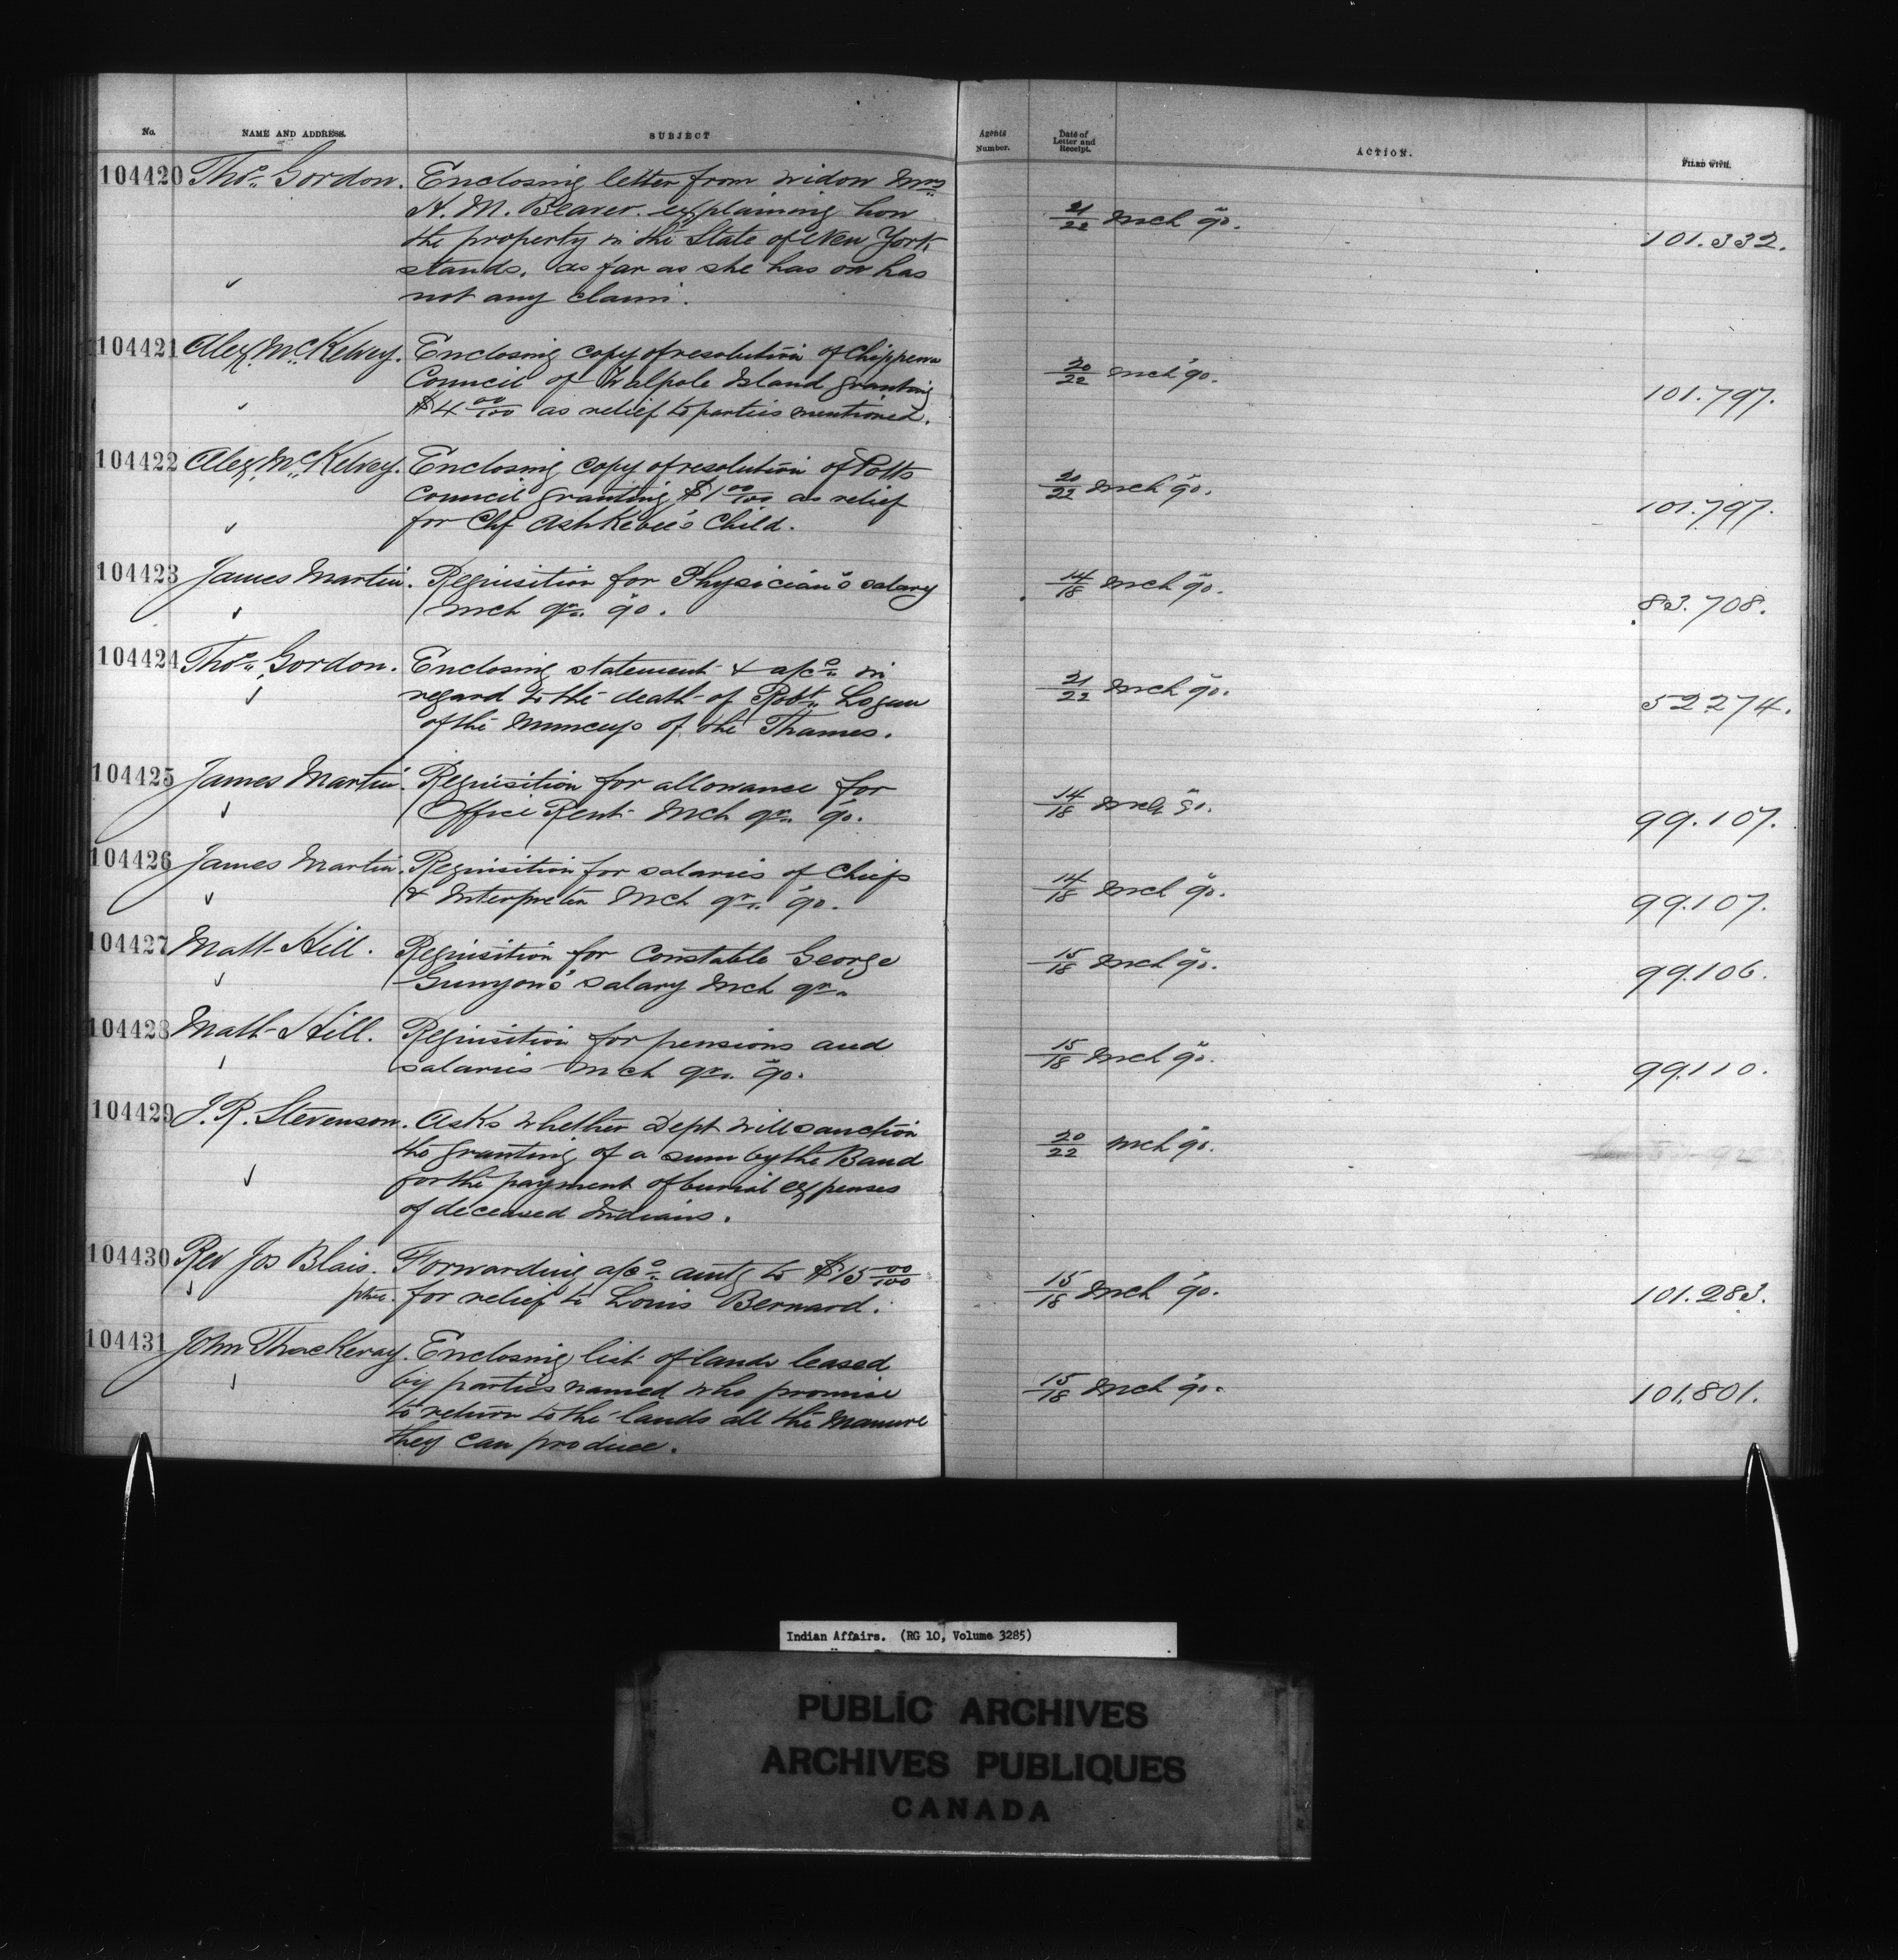 No. NAME AND ADDRESS. SUBJECT Agents Number. Date of Letter and Receipt. ACTION. FILED WITH.
104420 Thos. Gordon. Enclosing letter from widow Mrs
A. M. Beaver. explaining how
the property in the State of New York
stands. as far as she has or has
not any claim.
21/22 Mch '90. 101.332.
104421 Alex. McKelvey. Enclosing copy of resolution of Chippewa
Council of Walpole Island granting
$4 00/100 as relief to parties mentioned.
20/22 Mch '90. 101.797.
104422 Alex. McKelvey. Enclosing copy of resolution of Potts
Council granting $1 00/100 as relief
for Chf Ashkebee's Child.
20/22 Mch '90. 101.797.
104423 James Martin. Requisition for Physician's salary
Mch qr. '90.
14/18 Mch '90. 83.708.
104424 Thos. Gordon. Enclosing statement & a/cs. in
regard to the death of Robt. Logan
of the Munceys of the Thames.
21/22 Mch '90. 52274.
104425 James Martin. Requisition for allowance for
Office Rent Mch qr. '90.
14/18 Mch 90. 99.107.
104426 James Martin. Requisition for salaries of Chiefs
& Interpreter Mch qr. '90.
14/18 Mch '90. 99.107.
104427 Matt Hill. Requisition for Constable George
Gunyon's salary Mch qr.
15/18 Mch '90. 99.106.
104428 Matt Hill. Requisition for pensions and
salaries Mch qr. '90.
15/18 Mch '90. 99.110.
104429 J. R. Stevenson. Asks whether Dept will sanction
the granting of a sum by the Band
for the payment of burial expenses
of deceased Indians.
20/22 Mch '90.
104430 Rev Jos Blais. Forwarding a/cs. amtg to $15 00/100
ptre. for relief to Louis Bernard.
15/18 Mch '90. 101.283.
104431 John Thackeray. Enclosing list of lands leased
by parties named who promise
to return to the lands all the manure
they can produce.
15/18 Mch '90. 101.801.
Indian Affairs. (RG 10, Volume 3285)
PUBLIC ARCHIVES
ARCHIVES PUBLIQUES
CANADA